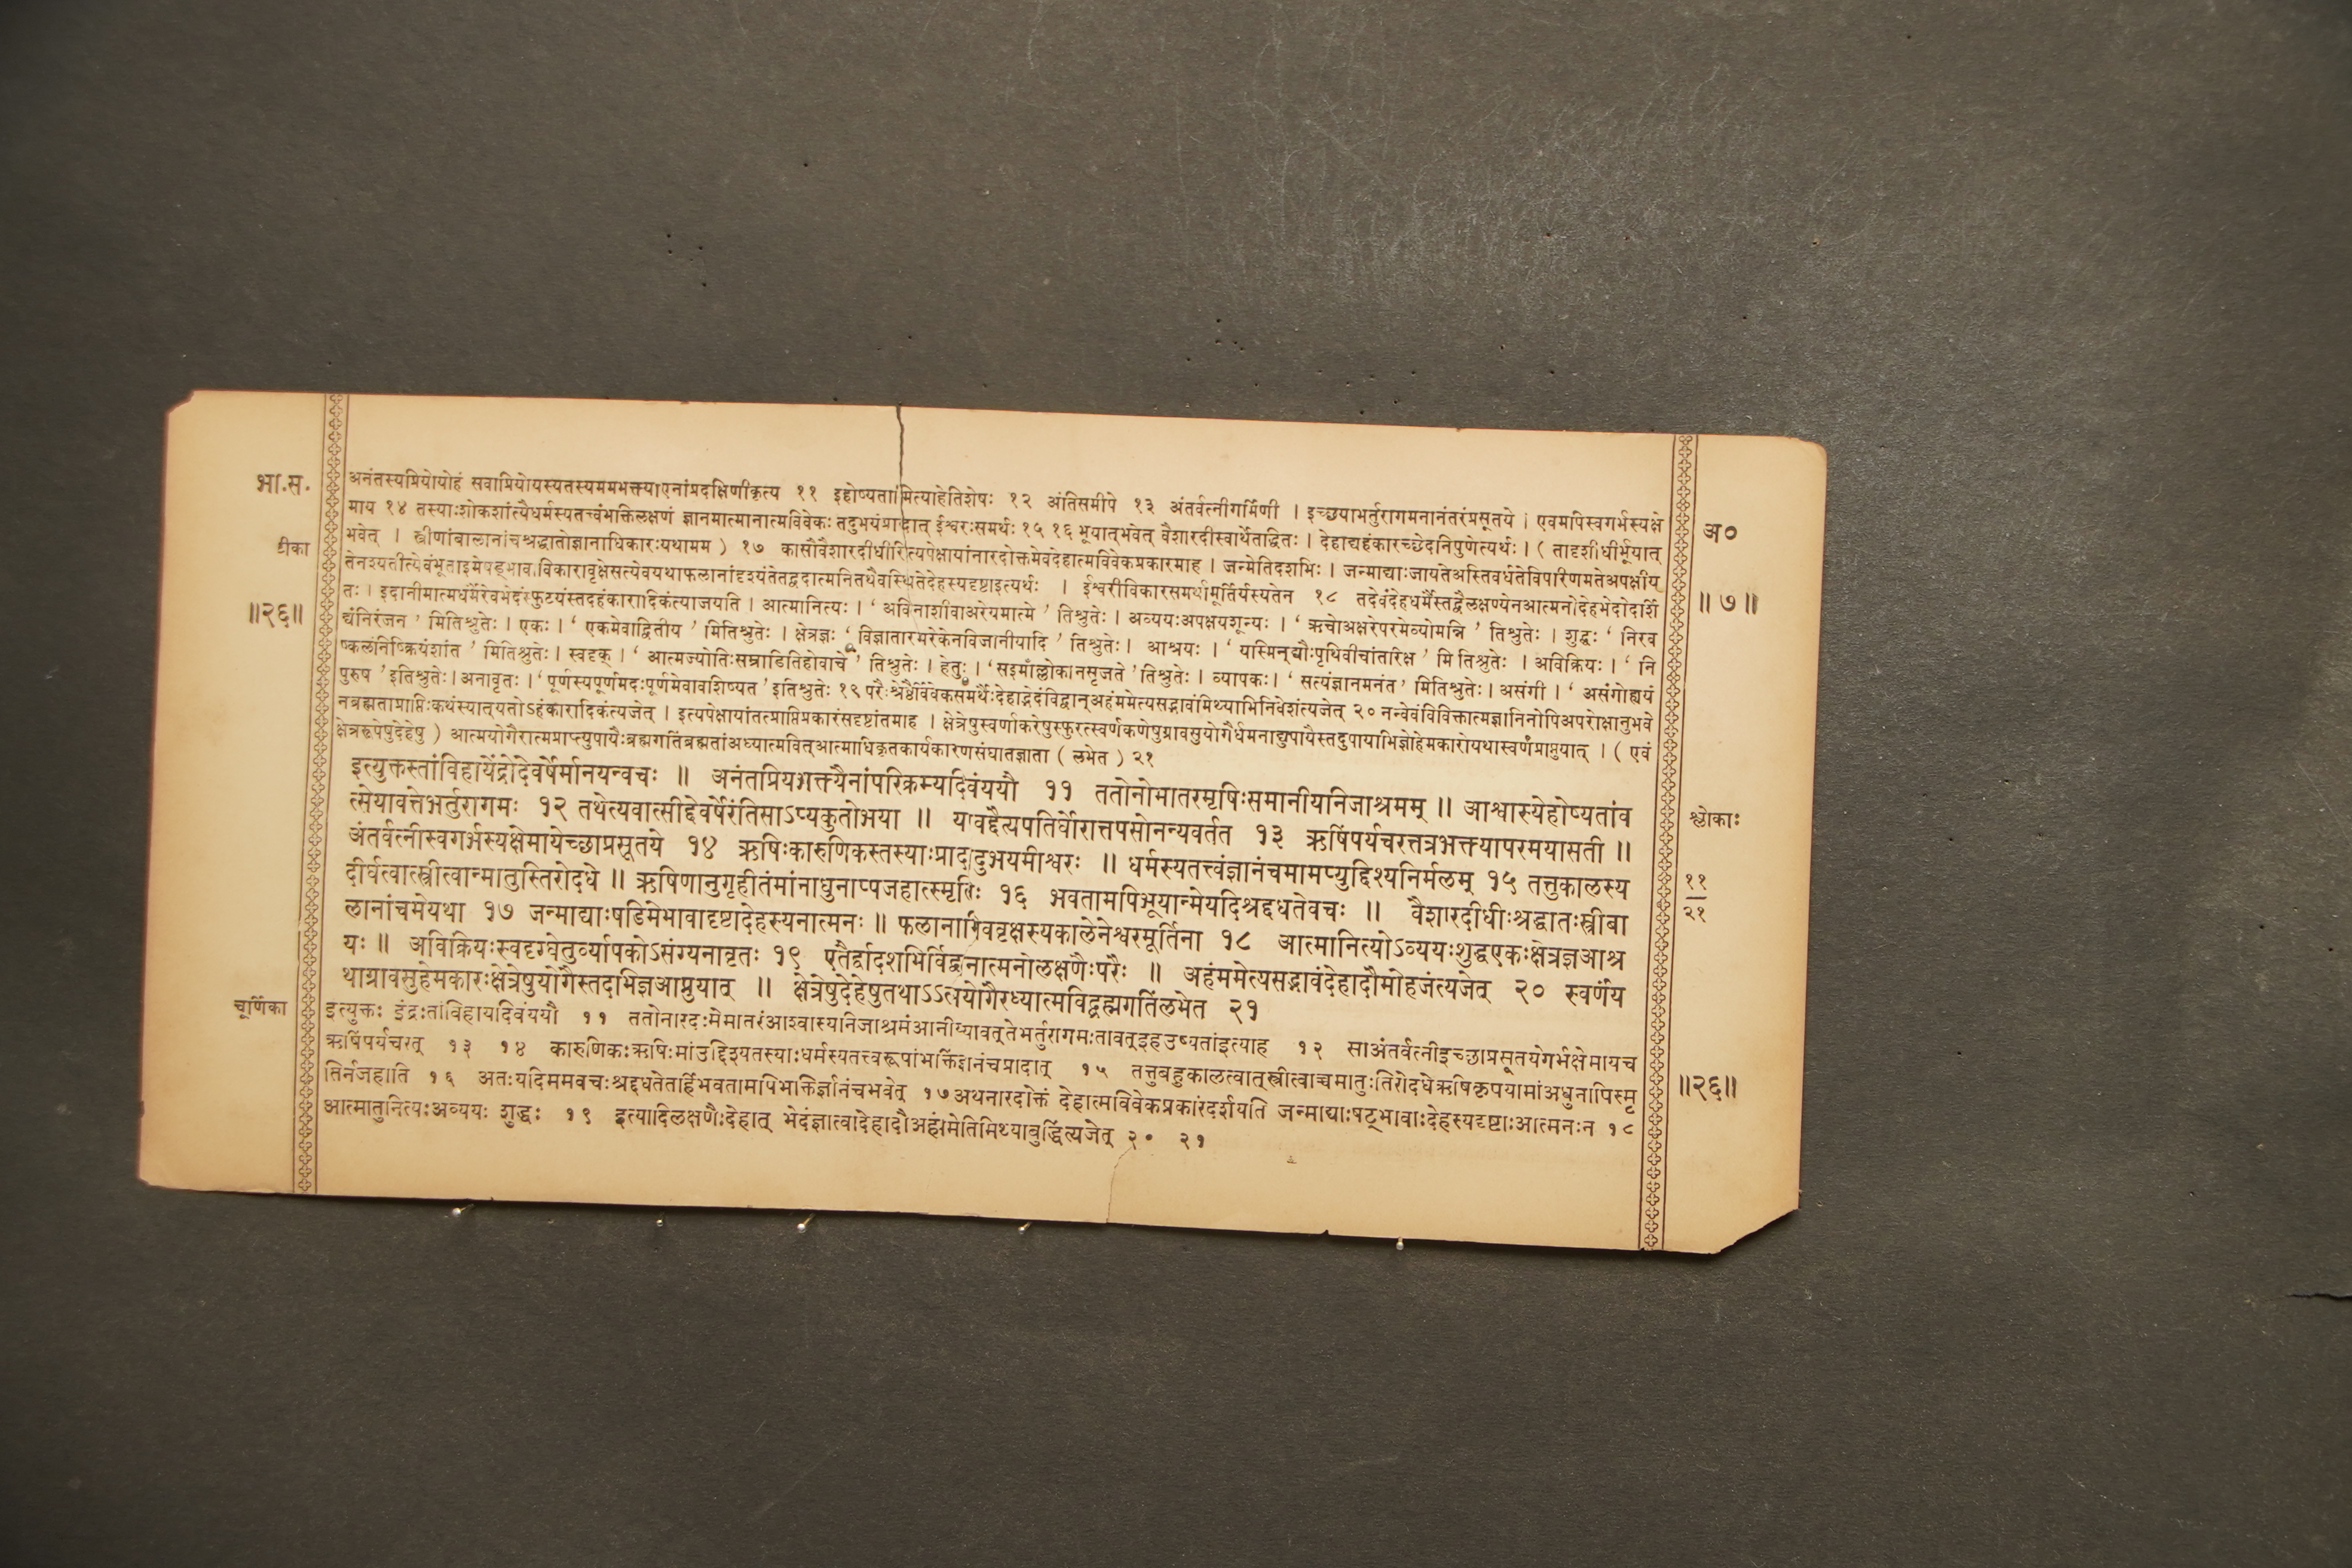 भा.स.
टीका
॥२६॥
अनंतस्यप्रियोयोहं सवाप्रियोयस्यतस्यममभक्त्याएनांप्रदक्षिणीकृत्य ११ इहोष्यतामित्याहेतिशेषः १२ अंतिसमीपे १३ अंतर्वत्नीगर्भिणी । इच्छयाभर्तुरागमनानंतरंप्रसूतये । एवमपिस्वगर्भस्यक्षे
माय १४ तस्याःशोकशांत्यैधर्मस्यतत्त्वंभक्तिलक्षणं ज्ञानमात्मानात्मविवेकः तदुभयंप्रादात् ईश्वरःसमर्थः १५ १६ भूयात्भवेत् वैशारदीस्वार्थेतद्धितः । देहाद्यहंकारच्छेदनिपुणेत्यर्थः । ( तादृशीधीर्भूयात्
भवेत् । स्त्रीणांबालानांचश्रद्धातोज्ञानाधिकारःयथामम ) १७ कासौवैशारदीधीरित्यपेक्षायांनारदोक्तमेवदेहात्मविवेकप्रकारमाह । जन्मेतिदशभिः । जन्माद्याःजायतेअस्तिवर्धतेविपरिणमतेअपक्षीय
तेनश्यतीत्येवंभूताइमेषड्भावाविकारावृक्षेसत्येवयथाफलानांदृश्यंतेतद्वदात्मनितथैवस्थितेदेहस्यदृष्टाइत्यर्थः । ईश्वरीविकारसमर्थामूर्तिर्यस्यतेन १८ तदेवंदेहधर्मैस्तद्वैलक्षण्येनआत्मनोदेहभेदोदर्शि
तः । इदानीमात्मधर्मैरेवभेदंस्फुटयंस्तदहंकारादिकंत्याजयति । आत्मानित्यः । ‘ अविनाशीवाअरेयमात्मे ’ तिश्रुतेः । अव्ययःअपक्षयशून्यः । ‘ ऋचोअक्षरेपरमेव्योमन्नि ’ तिश्रुतेः । शुद्धः ‘ निरव
द्यंनिरंजन ’ मितिश्रुतेः । एकः । ‘ एकमेवाद्वितीय ’ मितिश्रुतेः । क्षेत्रज्ञः ‘ विज्ञातारमरेकेनविजानीयादि ’ तिश्रुतेः । आश्रयः । ‘ यस्मिन्द्यौःपृथिवीचांतरिक्ष ’ मि तिश्रुतेः । अविक्रियः । ‘ नि
ष्कलंनिष्क्रियंशांत ’ मितिश्रुतेः । स्वदृक् । ‘ आत्मज्योतिःसम्राडितिहोवाचे ’ तिश्रुतेः । हेतुः । ‘ सइमाँल्लोकानसृजते ’ तिश्रुतेः । व्यापकः । ‘ सत्यंज्ञानमनंत ’ मितिश्रुतेः । असंगी । ‘ असंगोह्ययं
पुरुष ’ इतिश्रुतेः । अनावृतः । ‘ पूर्णस्यपूर्णमदःपूर्णमेवावशिष्यत ’ इतिश्रुतेः १९ परैःश्रेष्ठैर्विवेकसमर्थैःदेहाद्भेदंविद्वान्अहंममेत्यसद्भावंमिथ्याभिनिवेशंत्यजेत् २० नन्वेवंविविक्तात्मज्ञानिनोपिअपरोक्षानुभवे
नब्रह्मताप्राप्तिःकथंस्यात्यतोऽहंकारादिकंत्यजेत् । इत्यपेक्षायांतत्प्राप्तिप्रकारंसदृष्टांतमाह । क्षेत्रेषुस्वर्णाकरेषुस्फुरत्स्वर्णकणेषुग्रावसुयोगैर्धमनाद्युपायैस्तदुपायाभिज्ञोहेमकारोयथास्वर्णंप्राप्नुयात् । ( एवं
क्षेत्ररूपेषुदेहेषु ) आत्मयोगैरात्मप्राप्त्युपायैःब्रह्मगतिंब्रह्मतांअध्यात्मवित्आत्माधिकृतकार्यकारणसंघातज्ञाता ( लभेत ) २१
इत्युक्तस्तांविहायेंद्रोदेवर्षेर्मानयन्वचः ॥ अनंतप्रियभक्त्यैनांपरिक्रम्यदिवंययौ ११ ततोनोमातरमृषिःसमानीयनिजाश्रमम् ॥ आश्वास्येहोष्यतांव
त्सेयावत्तेभर्तुरागमः १२ तथेत्यवात्सीद्देवर्षेरंतिसाऽप्यकुतोभया ॥ यावद्दैत्यपतिर्घोरात्तपसोनन्यवर्तत १३ ऋषिंपर्यचरत्तत्रभक्त्यापरमयासती ॥
अंतर्वत्नीस्वगर्भस्यक्षेमायेच्छाप्रसूतये १४ ऋषिःकारुणिकस्तस्याःप्रादादुभयमीश्वरः ॥ धर्मस्यतत्त्वंज्ञानंचमामप्युद्दिश्यनिर्मलम् १५ तत्तुकालस्य
दीर्घत्वात्स्त्रीत्वान्मातुस्तिरोदधे ॥ ऋषिणानुगृहीतंमांनाधुनाप्यजहात्स्मृतिः १६ भवतामपिभूयान्मेयदिश्रद्दधतेवचः ॥ वैशारदीधीःश्रद्धातःस्त्रीबा
लानांचमेयथा १७ जन्माद्याःषडिमेभावादृष्टादेहस्यनात्मनः ॥ फलानामिववृक्षस्यकालेनेश्वरमूर्तिना १८ आत्मानित्योऽव्ययःशुद्धएकःक्षेत्रज्ञआश्र
यः ॥ अविक्रियःस्वदृग्घेतुर्व्यापकोऽसंग्यनावृतः १९ एतैर्द्वादशभिर्विद्वानात्मनोलक्षणैःपरैः ॥ अहंममेत्यसद्भावंदेहादौमोहजंत्यजेत् २० स्वर्णंय
थाग्रावसुहेमकारःक्षेत्रेषुयोगैस्तदभिज्ञआप्नुयात् ॥ क्षेत्रेषुदेहेषुतथाऽऽत्मयोगैरध्यात्मविद्ब्रह्मगतिंलभेत २१
चूर्णिका
इत्युक्तः इंद्रःतांविहायदिवंययौ ११ ततोनारदःमेमातरंआश्वास्यनिजाश्रमंआनीय्यावत्तेभर्तुरागमःतावत्इहउष्यतांइत्याह १२ साअंतर्वत्नीइच्छाप्रसूतयेगर्भक्षेमायच
ऋषिंपर्यचरत् १३ १४ कारुणिकःऋषिःमांउद्दिश्यतस्याःधर्मस्यतत्त्वरूपांभक्तिंज्ञानंचप्रादात् १५ तत्तुबहुकालत्वात्स्त्रीत्वाच्चमातुःतिरोदधेऋषिकृपयामांअधुनापिस्मृ
तिर्नजहाति १६ अतःयदिममवचःश्रद्दधतेतर्हिभवतामपिभक्तिर्ज्ञानंचभवेत् १७ अथनारदोक्तं देहात्मविवेकप्रकारंदर्शयति जन्माद्याःषट्भावाःदेहस्यदृष्टाःआत्मनःन १८
आत्मातुनित्यःअव्ययः शुद्धः १९ इत्यादिलक्षणैःदेहात् भेदंज्ञात्वादेहादौअहंममेतिमिथ्याबुद्धिंत्यजेत् २० २१
अ०
॥ ७ ॥
श्लोकाः
११
२१
॥२६॥